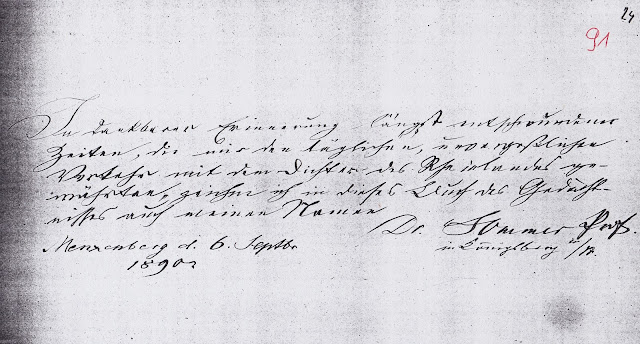 24
91
In dankbarer Erinnerung längst entschwundener
Zeiten, die mir den täglichen, unvergeßlichen
Verkehr mit dem Dichter des Rheinlandes ge-
währten, zeichne ich in dieses Buch des Gedächt-
nisses auch meinen Namen
Dr. Sommer Prof.
in Königsberg i/Pr.
Menzenberg d. 6. Septbr
1890